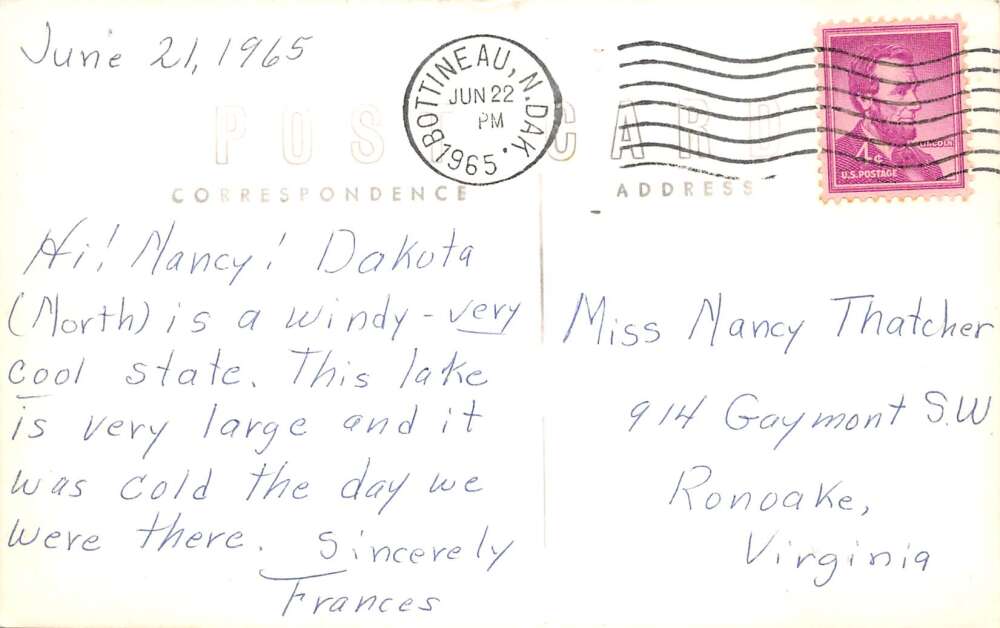 June 21, 1965
BOTTINEAU, N. DAK.
JUN 22
PM
1965
LINCOLN
4¢
U.S. POSTAGE
POST CARD
CORRESPONDENCE
ADDRESS
Hi! Nancy! Dakota
(North) is a windy - very
cool state. This lake
is very large and it
was cold the day we
were there. Sincerely
Frances
Miss Nancy Thatcher
914 Gaymont S.W
Ronoake,
Virginia